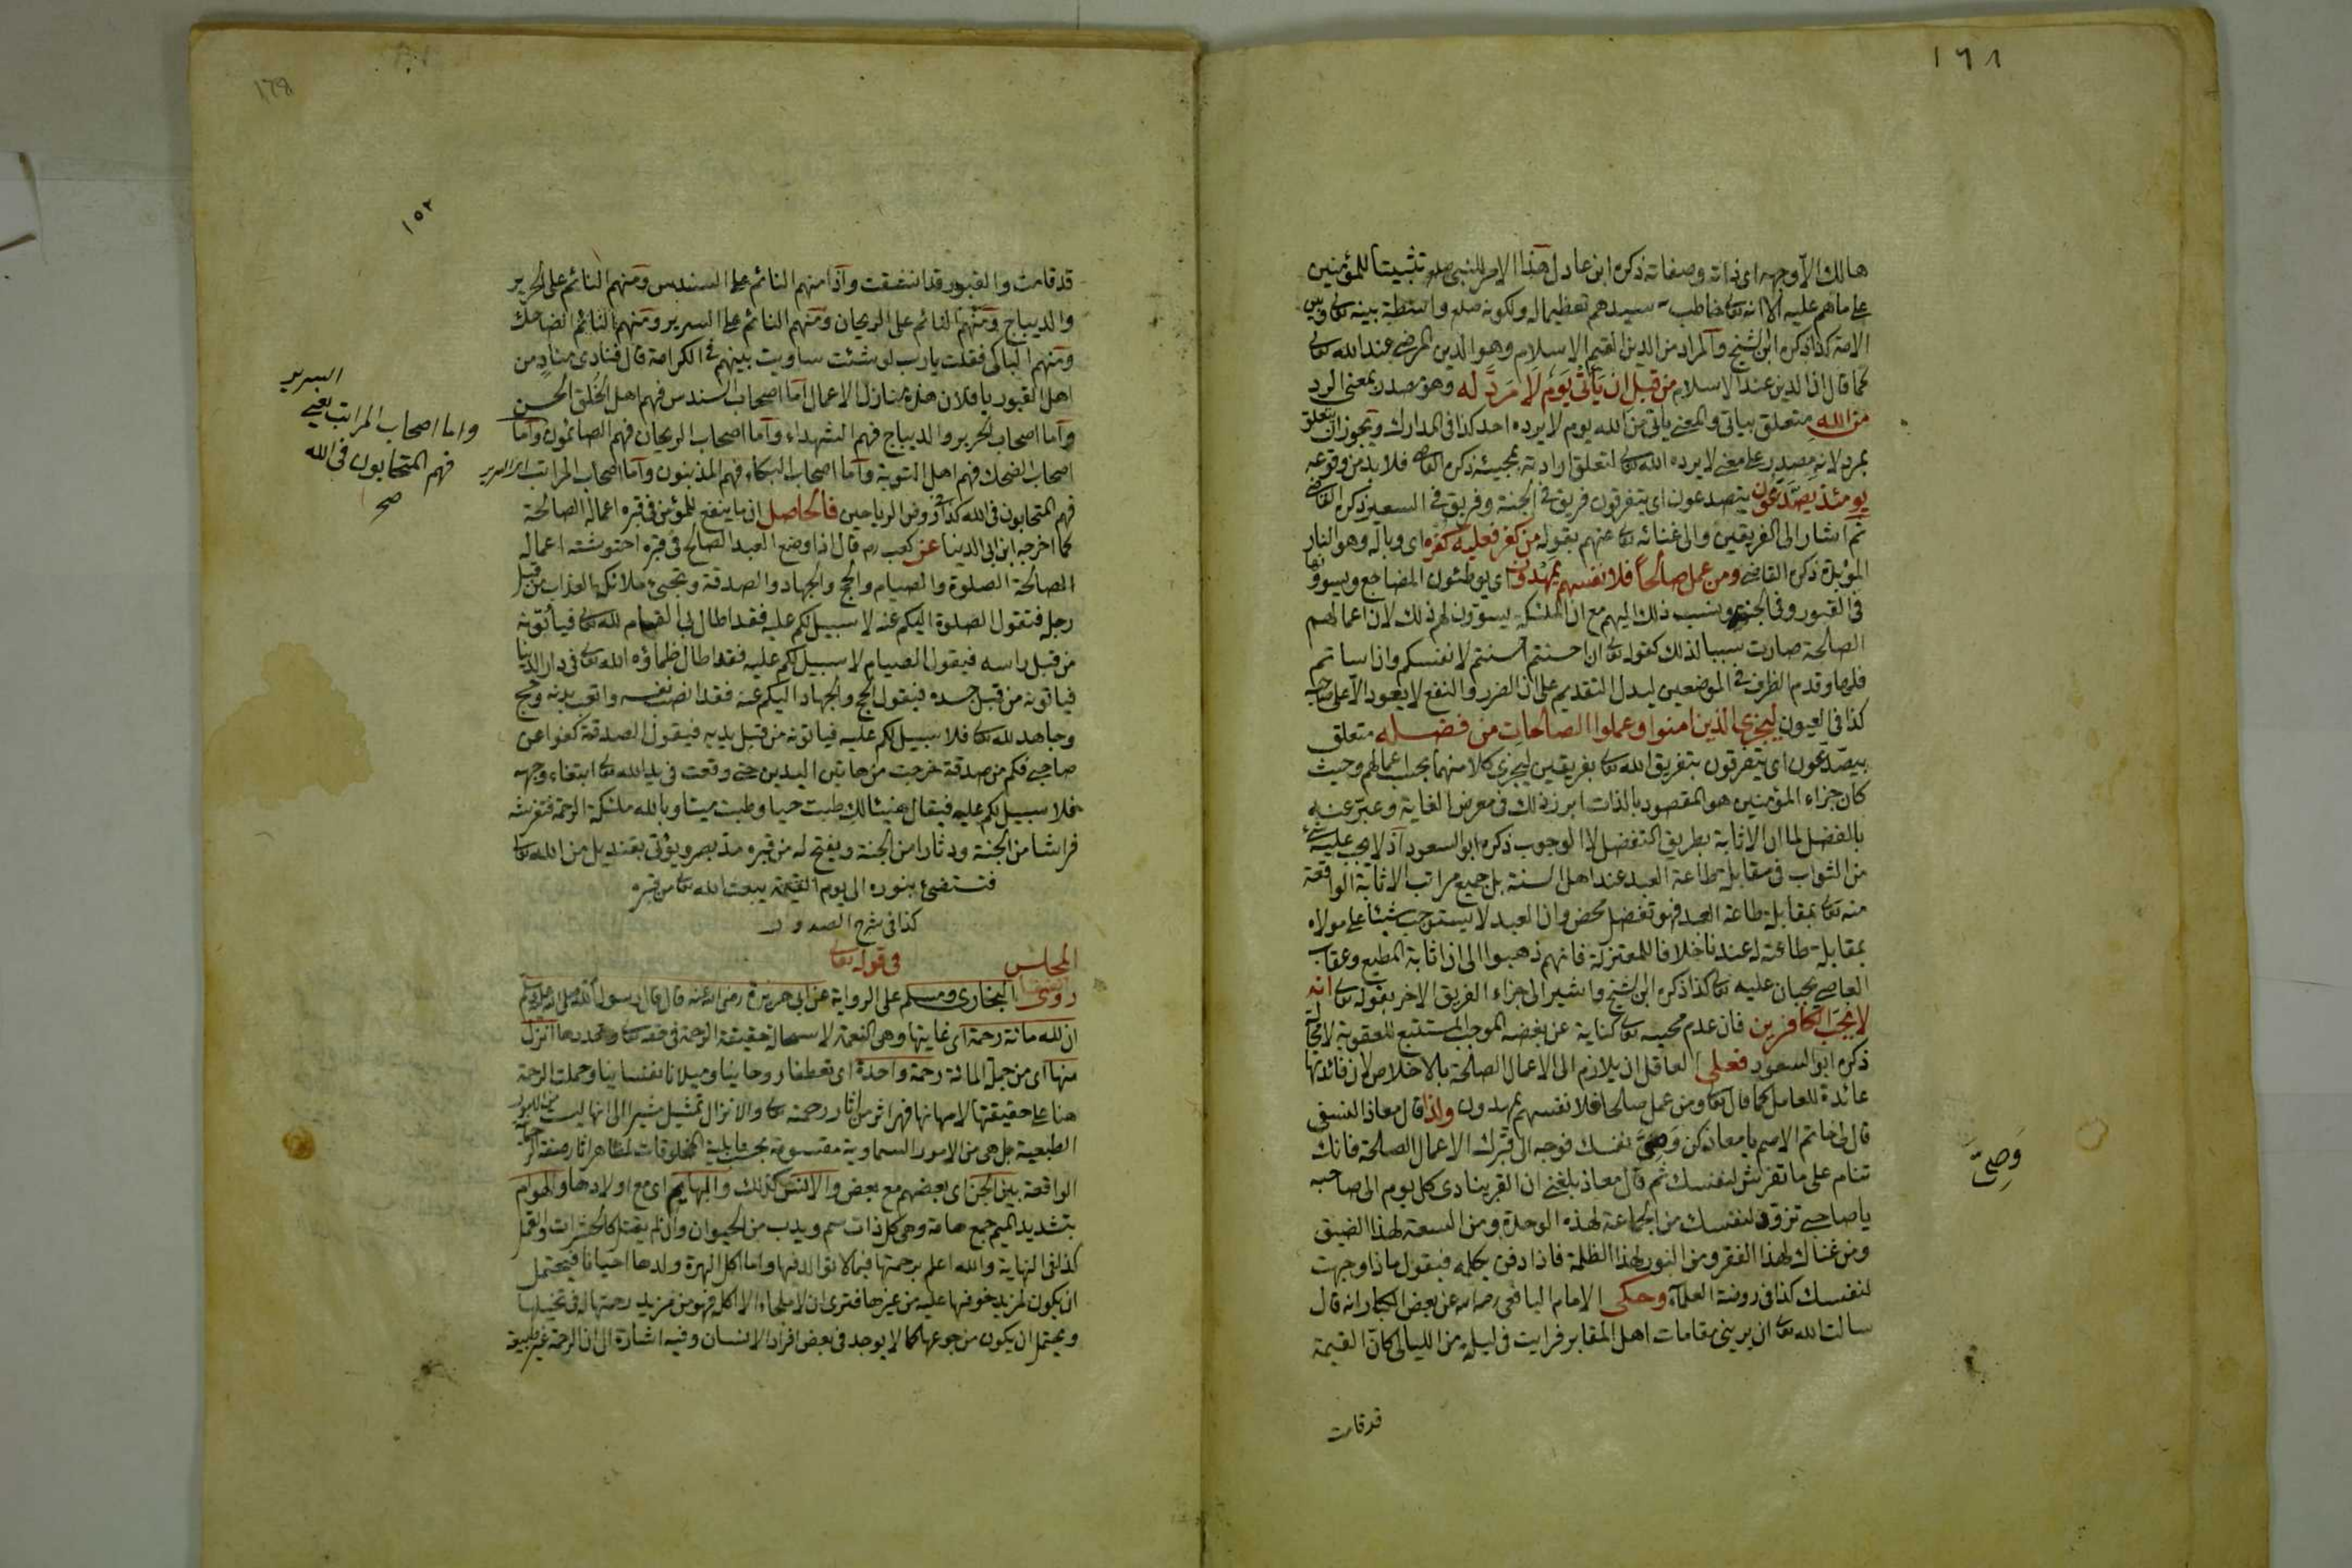 ١٦٨
هالك الا وجهه اى ذاته وصفاته ذكره ابن عادل هذا الامر للنبى صلع تثبيتا للمؤمنين
على ما هم عليه الا انه تعالى خاطب سيدهم تعظيما له ولكونه صلع واسطة بينه تعالى وبين
الامة كذا ذكره ابن الشيخ والمراد من الدين القيم الاسلام وهو الدين المرضى عند الله تعالى
كما قال ان الدين عند الاسلام من قبل ان يأتى يوم لا مرد له وهو مصدر بمعنى الرد
من الله متعلق بياتى والمعنى ياتى من الله يوم لا يرده احد كذا فى المدارك ويجوز ان يتعلق
بمرد لانه مصدر على معنى لا يرده الله تعالى لتعلق ارادته بمجيئه ذكره القاضى فلا بد من وقوعه
يومئذ يصدعون يتصدعون اى يتفرقون فريق فى الجنة وفريق فى السعير ذكره القاضى
ثم اشار الى الفريقين والى غنائه تعالى عنهم بقوله من كفر فعليه كفره اى وباله وهو النار
المؤبدة ذكره القاضى ومن عمل صالحا فلانفسهم يمهدون اى يوطئون المضاجع ويسوونها
فى القبور وفى الجنة ونسب ذلك اليهم مع ان الملئكة يسوون لهم ذلك لان اعمالهم
الصالحة صارت سببا لذلك كقوله تعالى ان احسنتم احسنتم لانفسكم وان اساتم
فلها وقدم الظرف فى الموضعين ليدل التقديم على ان الضرر والنفع لا يعود الا على صاحبه
كذا فى العيون ليجزى الذين امنوا وعملوا الصالحات من فضله متعلق
بيصدعون اى يتفرقون بتفريق الله تعالى بفريقين ليجزى كلا منهما بحسب اعمالهم وحيث
كان جزاء المؤمنين هو المقصود بالذات ابرز ذلك فى معرض الغاية وعبر عنه
بالفضل لما ان الاثابة بطريق التفضل لا الوجوب ذكره ابو السعود اذ لا يجب عليه شئ
من الثواب فى مقابلة طاعة العبد عند اهل السنة بل جميع مراتب الاثابة الواقعة
منه تعالى بمقابلة طاعة العبد فهو تفضل محض وان العبد لا يستوجب شيئا على مولاه
بمقابلة طاعته له عندنا خلافا للمعتزلة فانهم ذهبوا الى ان اثابة المطيع وعقاب
العاصى يجبان عليه تعالى كذا ذكره ابن الشيخ واشير الى جزاء الفريق الاخر بقوله تعالى انه
لا يحب الكافرين فان عدم محبته تعالى كناية عن بغضه الموجب المستتبع للعقوبة لا محالة
ذكره ابو السعود فعلى العاقل ان يلازم الى الاعمال الصالحة بالاخلاص لان فائدتها
عائدة للعامل كما قال تعالى ومن عمل صالحا فلانفسهم يمهدون واذا قال معاذ النسفى
قال لى حاتم الاصم يا معاذ كن وصى نفسك فوجه الى قبرك الاعمال الصالحة فانك
تنام على ما تفرش لنفسك ثم قال معاذ بلغنى ان القبر ينادى كل يوم الى صاحبه
يا صاحبى تزود لنفسك من الجماعة لهذه الوحدة ومن السعة لهذا الضيق
ومن غناك لهذا الفقر ومن النور لهذا الظلمة فاذا دفن يكلمه فيقول ماذا وجهت
لنفسك كذا فى روضة العلماء وحكى الامام اليافعى رحمه الله عن بعض الكبار انه قال
سالت الله تعالى ان يرينى مقامات اهل المقابر فرايت فى ليلة من الليالى كان القيمة
قد قامت
وَصِىَّ
178
١٥٢
قد قامت والقبور قد انشقت واذا منهم النائم على السندس ومنهم النائم على الحرير
والديباج ومنهم النائم على الريحان ومنهم النائم على السرير ومنهم النائم الضاحك
ومنهم الباكى فقلت يا رب لو شئت ساويت بينهم فى الكرامة قال فنادى مناد من
اهل القبور يا فلان هذه منازل الاعمال اما اصحاب السندس فهم اهل الخلق الحسن
واما اصحاب الحرير والديباج فهم الشهداء واما اصحاب الريحان فهم الصائمون واما
اصحاب الضحك فهم اهل التوبة واما اصحاب البكاء فهم المذنبون واما اصحاب المراتب
فهم المتحابون فى الله كذا فى روض الرياحين فالحاصل ان ما ينفع للمؤمن فى قبره اعماله الصالحة
كما اخرجه ابن ابى الدنيا عن كعب رض قال اذا وضع العبد الصالح فى قبره احتوشته اعماله
الصالحة الصلوة والصيام والحج والجهاد والصدقة وتجئ ملائكة العذاب من قبل
رجله فتقول الصلوة اليكم عنه لا سبيل لكم عليه فقد اطال بى القيام لله تعالى فيأتونه
من قبل راسه فيقول الصيام لا سبيل لكم عليه فقد اطال ظماؤه الله تعالى فى دار الدنيا
فياتونه من قبل جسده فيقول الحج والجهاد اليكم عنه فقد انصب نفسه واتعب بدنه وحج
وجاهد لله تعالى فلا سبيل لكم عليه فياتونه من قبل يديه فيقول الصدقة كفوا عن
صاحبى فكم من صدقة خرجت من هاتين اليدين حتى وقعت فى يد الله تعالى ابتغاء وجهه
فلا سبيل لكم عليه فيقال هنيئا لك طبت حيا وطبت ميتا ملئكة الرحمة فتفرشه
فراشا من الجنة ودثارا من الجنة ويفتح له من قبره مد بصره ويؤتى بقنديل من الله تعالى
فتستضئ بنوره الى يوم القيمة يبعث الله تعالى من قبره
كذا فى شرح الصدور
المجلس فى قوله تعالى
روى البخارى ومسلم على الرواية عن ابى هريرة رضى الله عنه قال قال رسول الله صلى الله عليه وسلم
ان لله مائة رحمة اى غايتها وهى النعمة لاستحالة حقيقة الرحمة فى حقه تعالى انزل
منها اى من جملة المائة رحمة واحدة اى تعطفا روحانيا وميلانا نفسانيا وحملت الرحمة
هنا على حقيقتها لامكانها فهى اثر من اثار رحمته تعالى والانزال تمثيل مشيرا الى انها ليست من الامور
الطبيعية بل هى من الامور السماوية مقسومة بحسب قابلية المخلوقات
الواقعة بين الجن اى بعضهم مع بعض والانس كذلك والبهايم اى مع اولادها والهوام
بتشديد الميم جمع هامة وهى كل ذات سم ويدب من الحيوان وان لم يقتل كالحشرات والقمل
كذا فى النهاية والله اعلم برحمتها فيما لا توالد فيها واما اكل الهرة ولدها احيانا فيحتمل
ان يكون لمزيد خوفها عليه من غيرها فترى ان لا ملجاء الا الاكل فهو من مزيد رحمتها له فى تخيلها
ويحتمل ان يكون من جوعها كما لا يوجد فى بعض افراد الانسان وفيه اشارة الى ان الرحمة غير طبيعة
السرير
واما اصحاب المراتب يعنى
فهم المتحابون فى الله
صح